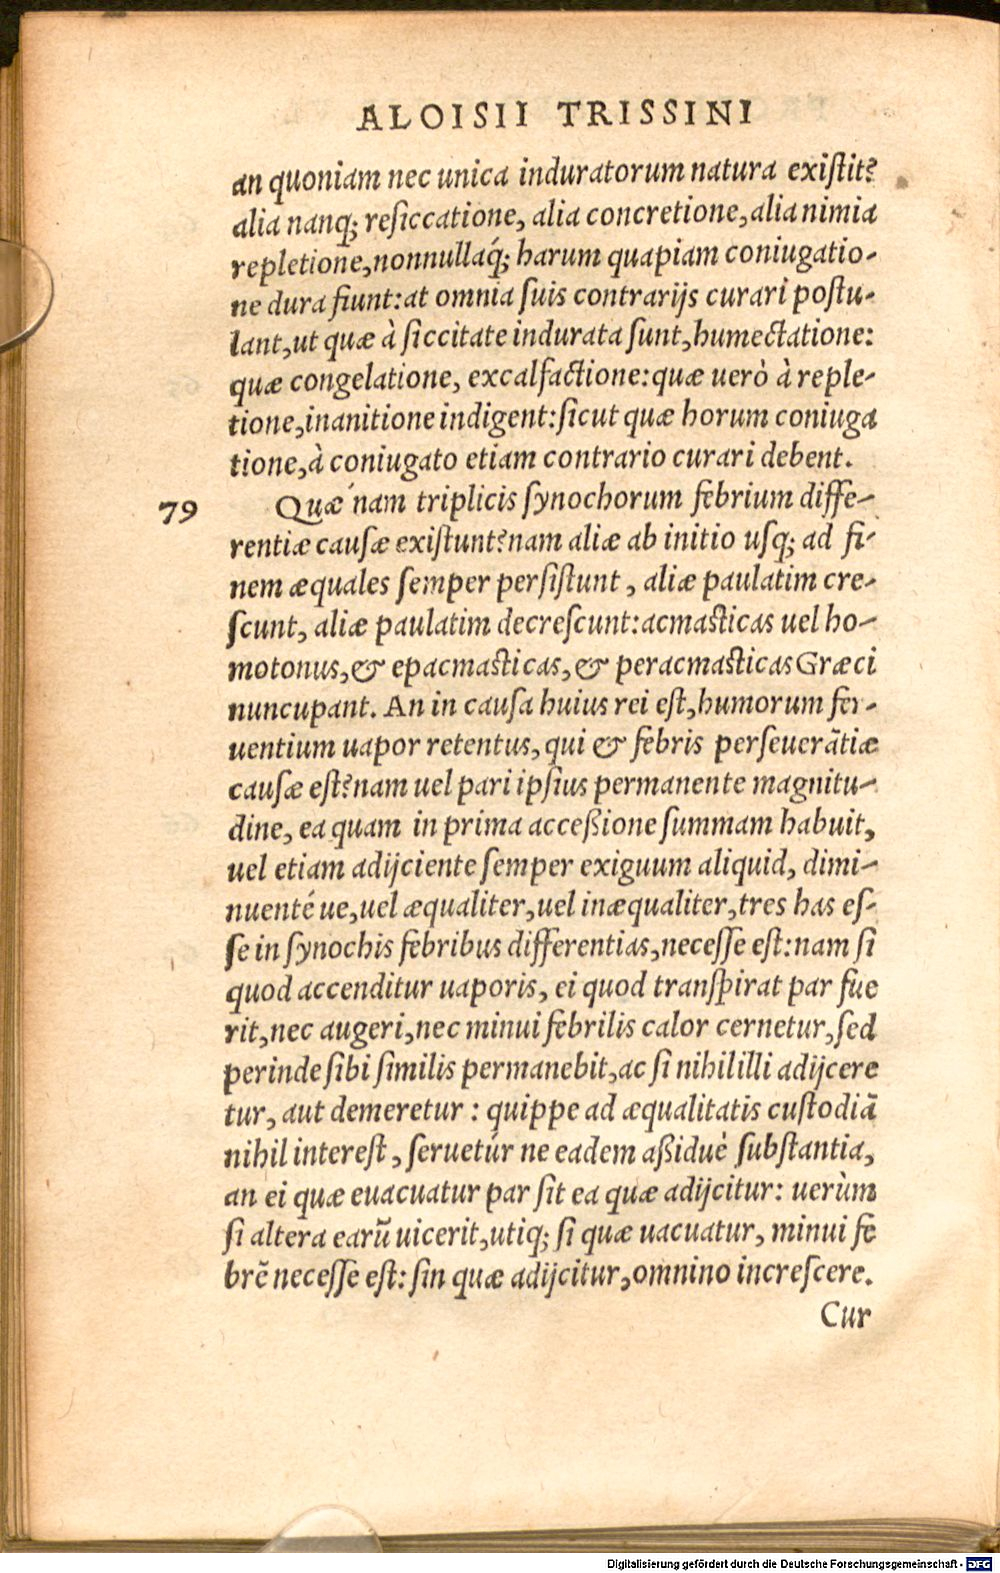 ALOISII TRISSINI
an quoniam nec unica induratorum natura existit?
alia nanq; resiccatione, alia concretione, alia nimia
repletione, nonnullaq́; harum quapiam coniugatio-
ne dura fiunt: at omnia suis contrarijs curari postu-
lant, ut quæ à siccitate indurata sunt, humectatione:
quæ congelatione, excalfactione: quæ uerò à reple-
tione, inanitione indigent: sicut quæ horum coniuga
tione, à coniugato etiam contrario curari debent.
79 Quæ´nam triplicis synochorum febrium diffe-
rentiæ causæ existunt? nam aliæ ab initio usq; ad fi-
nem æquales semper persistunt, aliæ paulatim cre-
scunt, aliæ paulatim decrescunt: acmasticas uel ho-
motonus, & epacmasticas, & peracmasticas Græci
nuncupant. An in causa huius rei est, humorum fer-
uentium uapor retentus, qui & febris perseuerātiæ
causæ est? nam uel pari ipsius permanente magnitu-
dine, ea quam in prima accessione summam habuit,
uel etiam adijciente semper exiguum aliquid, dimi-
nuenté ue, uel æqualiter, uel inæqualiter, tres has es-
se in synochis febribus differentias, necesse est: nam si
quod accenditur uaporis, ei quod transpirat par fue
rit, nec augeri, nec minui febrilis calor cernetur, sed
perinde sibi similis permanebit, ac si nihil illi adijcere
tur, aut demeretur : quippe ad æqualitatis custodiā
nihil interest, seruetúr ne eadem assiduè substantia,
an ei quæ euacuatur par sit ea quæ adijcitur: uerùm
si altera earū uicerit, utiq; si quæ uacuatur, minui fe
brē necesse est: sin quæ adijcitur, omnino increscere.
Cur
Digitalisierung gefördert durch die Deutsche Forschungsgemeinschaft - DFG